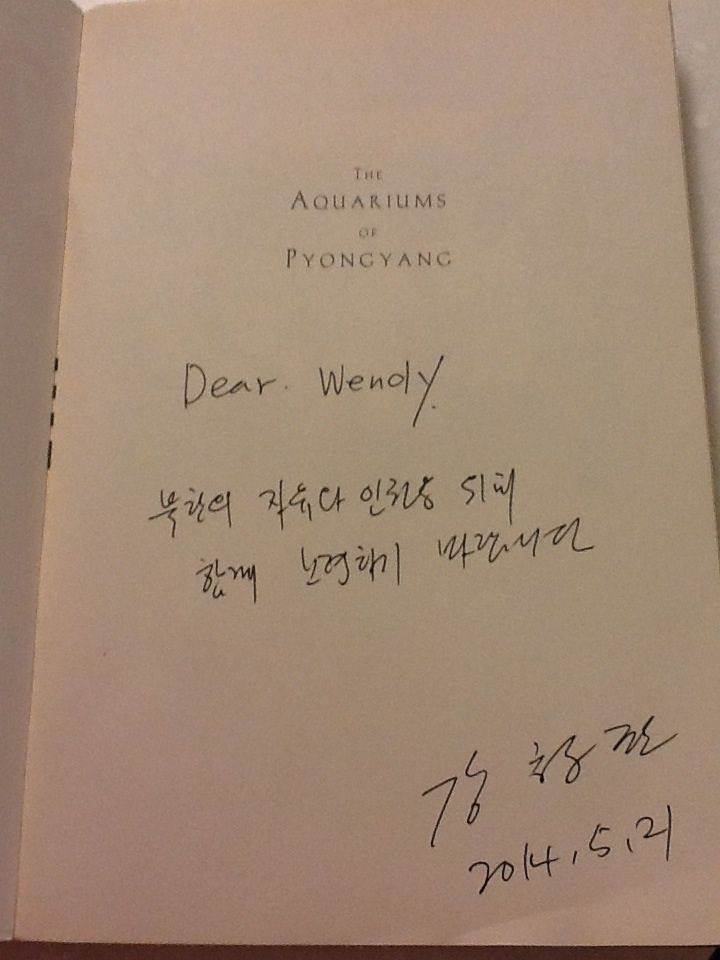 THE
AQUARIUMS
OF
PYONGYANG
Dear. Wendy.
북한의 자유와 인권을 위해
함께 노력하기 바랍니다
강철환
2014.5.21